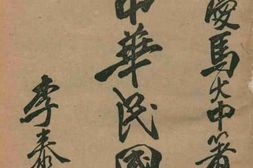 馬大中
中華民國
李泰